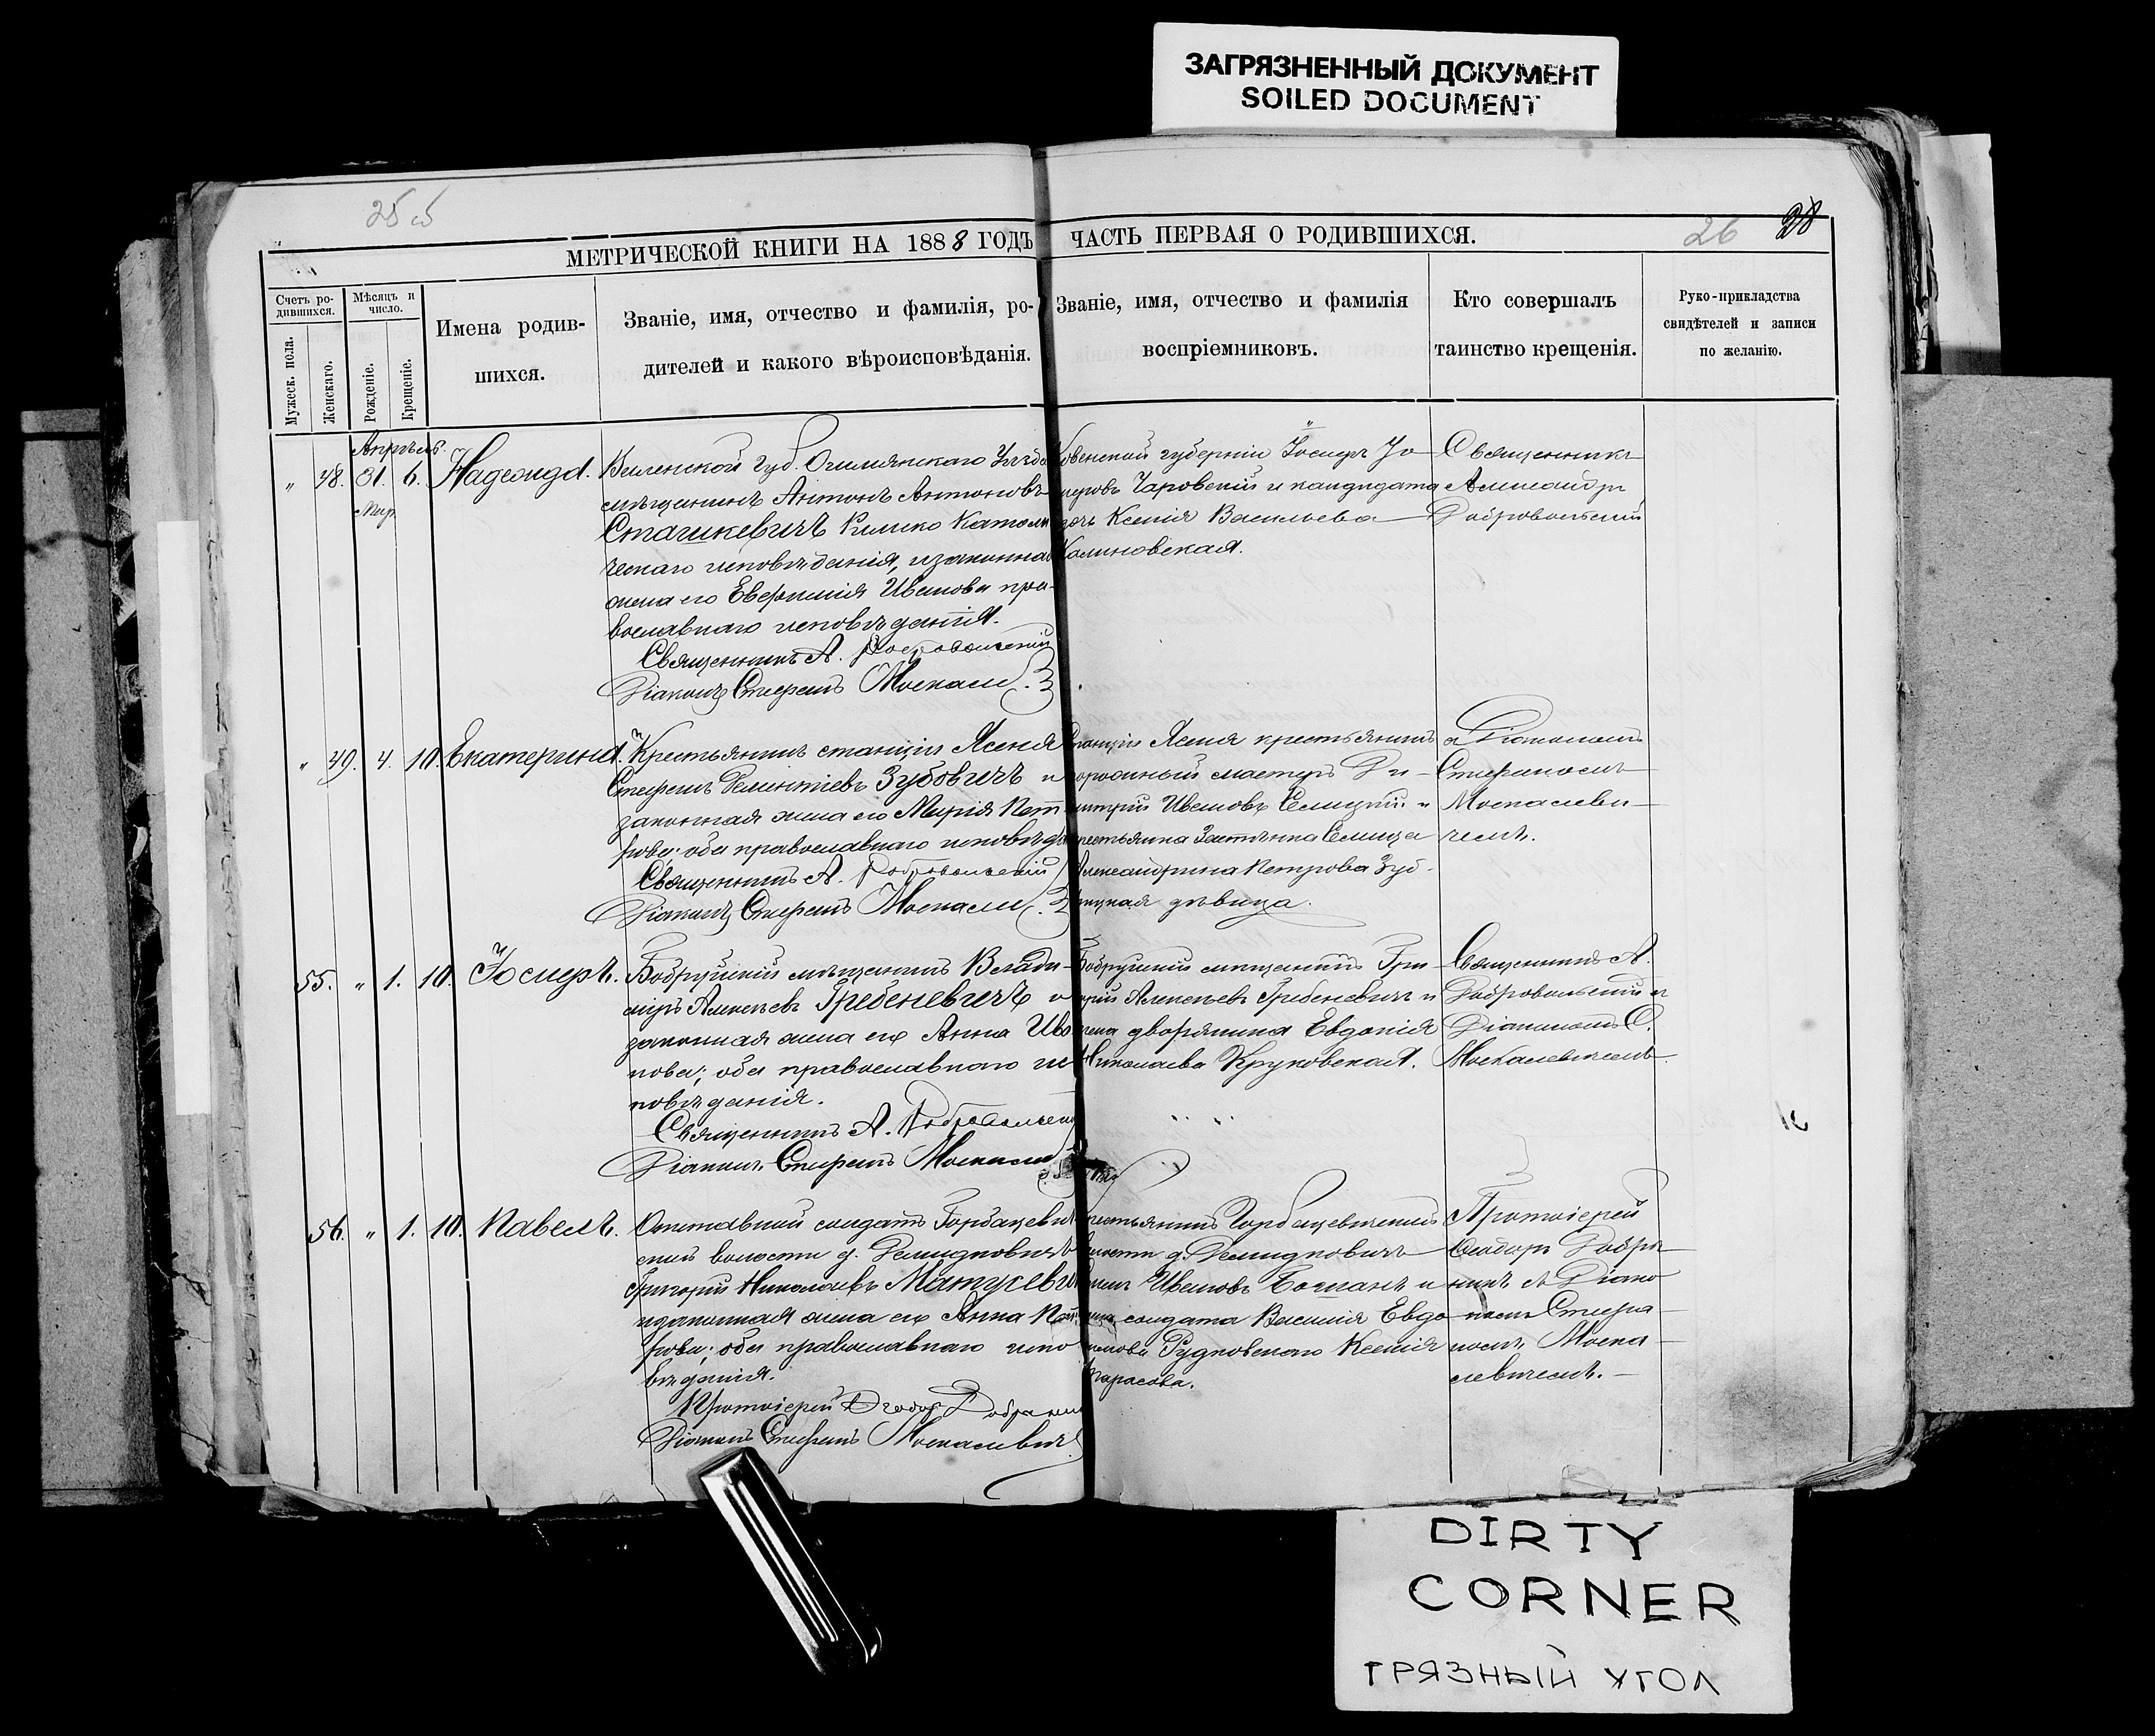 ЗАГРЯЗНЕННЫЙ ДОКУМЕНТ
SOILED DOCUMENT
25 об
26 28
МЕТРИЧЕСКОЙ КНИГИ НА 1888 ГОДЪ ЧАСТЬ ПЕРВАЯ О РОДИВШИХСЯ.
Счетъ ро-
дившихся.
Мужеск. пола.
Женскаго.
Мѣсяцъ и
число.
Рожденіе.
Крещеніе.
Имена родив-
шихся.
Званіе, имя, отчество и фамилія, ро-
дителей и какого вѣроисповѣданія.
Званіе, имя, отчество и фамилія
воспріемниковъ.
Кто совершалъ
таинство крещенія.
Руко-прикладства
свидѣтелей и записи
по желанію.
Апрѣль.
" 48. 31. 6. Надежда.
Мар.
Виленской губ. Ошмянскаго Уѣзда
мѣщанинъ Антонъ Антоновъ
Сташкевичъ Римско Католи
ческаго исповѣданія, и законная
жена его Евфимія Иванова пра-
вославнаго исповѣданія.
Священникъ А. Добровольскій
Діаконъ Стефанъ Москале
Ковенской губерніи Іосифъ Іо
сифовъ Чаровскій и кандидата
дочь Ксенія Васильева
Калиновская.
Священникъ
Александръ
Добровольскій
" 49. 4. 10. Екатерина.
Крестьянинъ станціи Ясеня
Стефанъ Зубовичъ и
законная жена его Марія Пет
рова; оба православнаго исповѣда
Священникъ А. Добровольскій
Діаконъ Стефанъ Москале
Станціи Ясеня крестьянинъ
дорожный мастеръ Ди-
митрій Ивановъ и
Александрина Петрова Зуб
дѣвица.
съ Діакономъ
Стефаномъ
Москалеви-
чемъ.
55. " 1. 10. Іосифъ.
Бобруйскій мѣщанинъ Влади-
міръ Алексѣевъ Гребеневичъ и
законная жена его Анна Ива
нова; оба православнаго ис
повѣданія.
Священникъ А. Добровольскій
Діаконъ Стефанъ Москале
Бобруйскій мѣщанинъ Гри-
горій Алексѣевъ Гребеневичъ и
жена дворянина Евдокія
Николаева Круковская.
Священникъ А.
Добровольскій и
Діакономъ С.
Москалевичемъ.
56. " 1. 10. Павелъ.
Отставной солдатъ Горбацевич
ской волости д.
Григорій Николаевъ Матусевич
и законная жена его Анна Пет
рова; оба православнаго испо
вѣданія.
Протоіерей Ѳеодоръ Добрынинъ
Діаконъ Стефанъ Москалевичъ
крестьянинъ Горбацевичской
волости д.
Ивановъ и
жена солдата Василія Евдо
кимова Рудковскаго Ксенія
Тарасова.
Протоіерей
Ѳеодоръ Добры-
нинъ съ Діако
номъ Стефа-
номъ Моска-
левичемъ.
DIRTY
CORNER
ГРЯЗНЫЙ УГОЛ